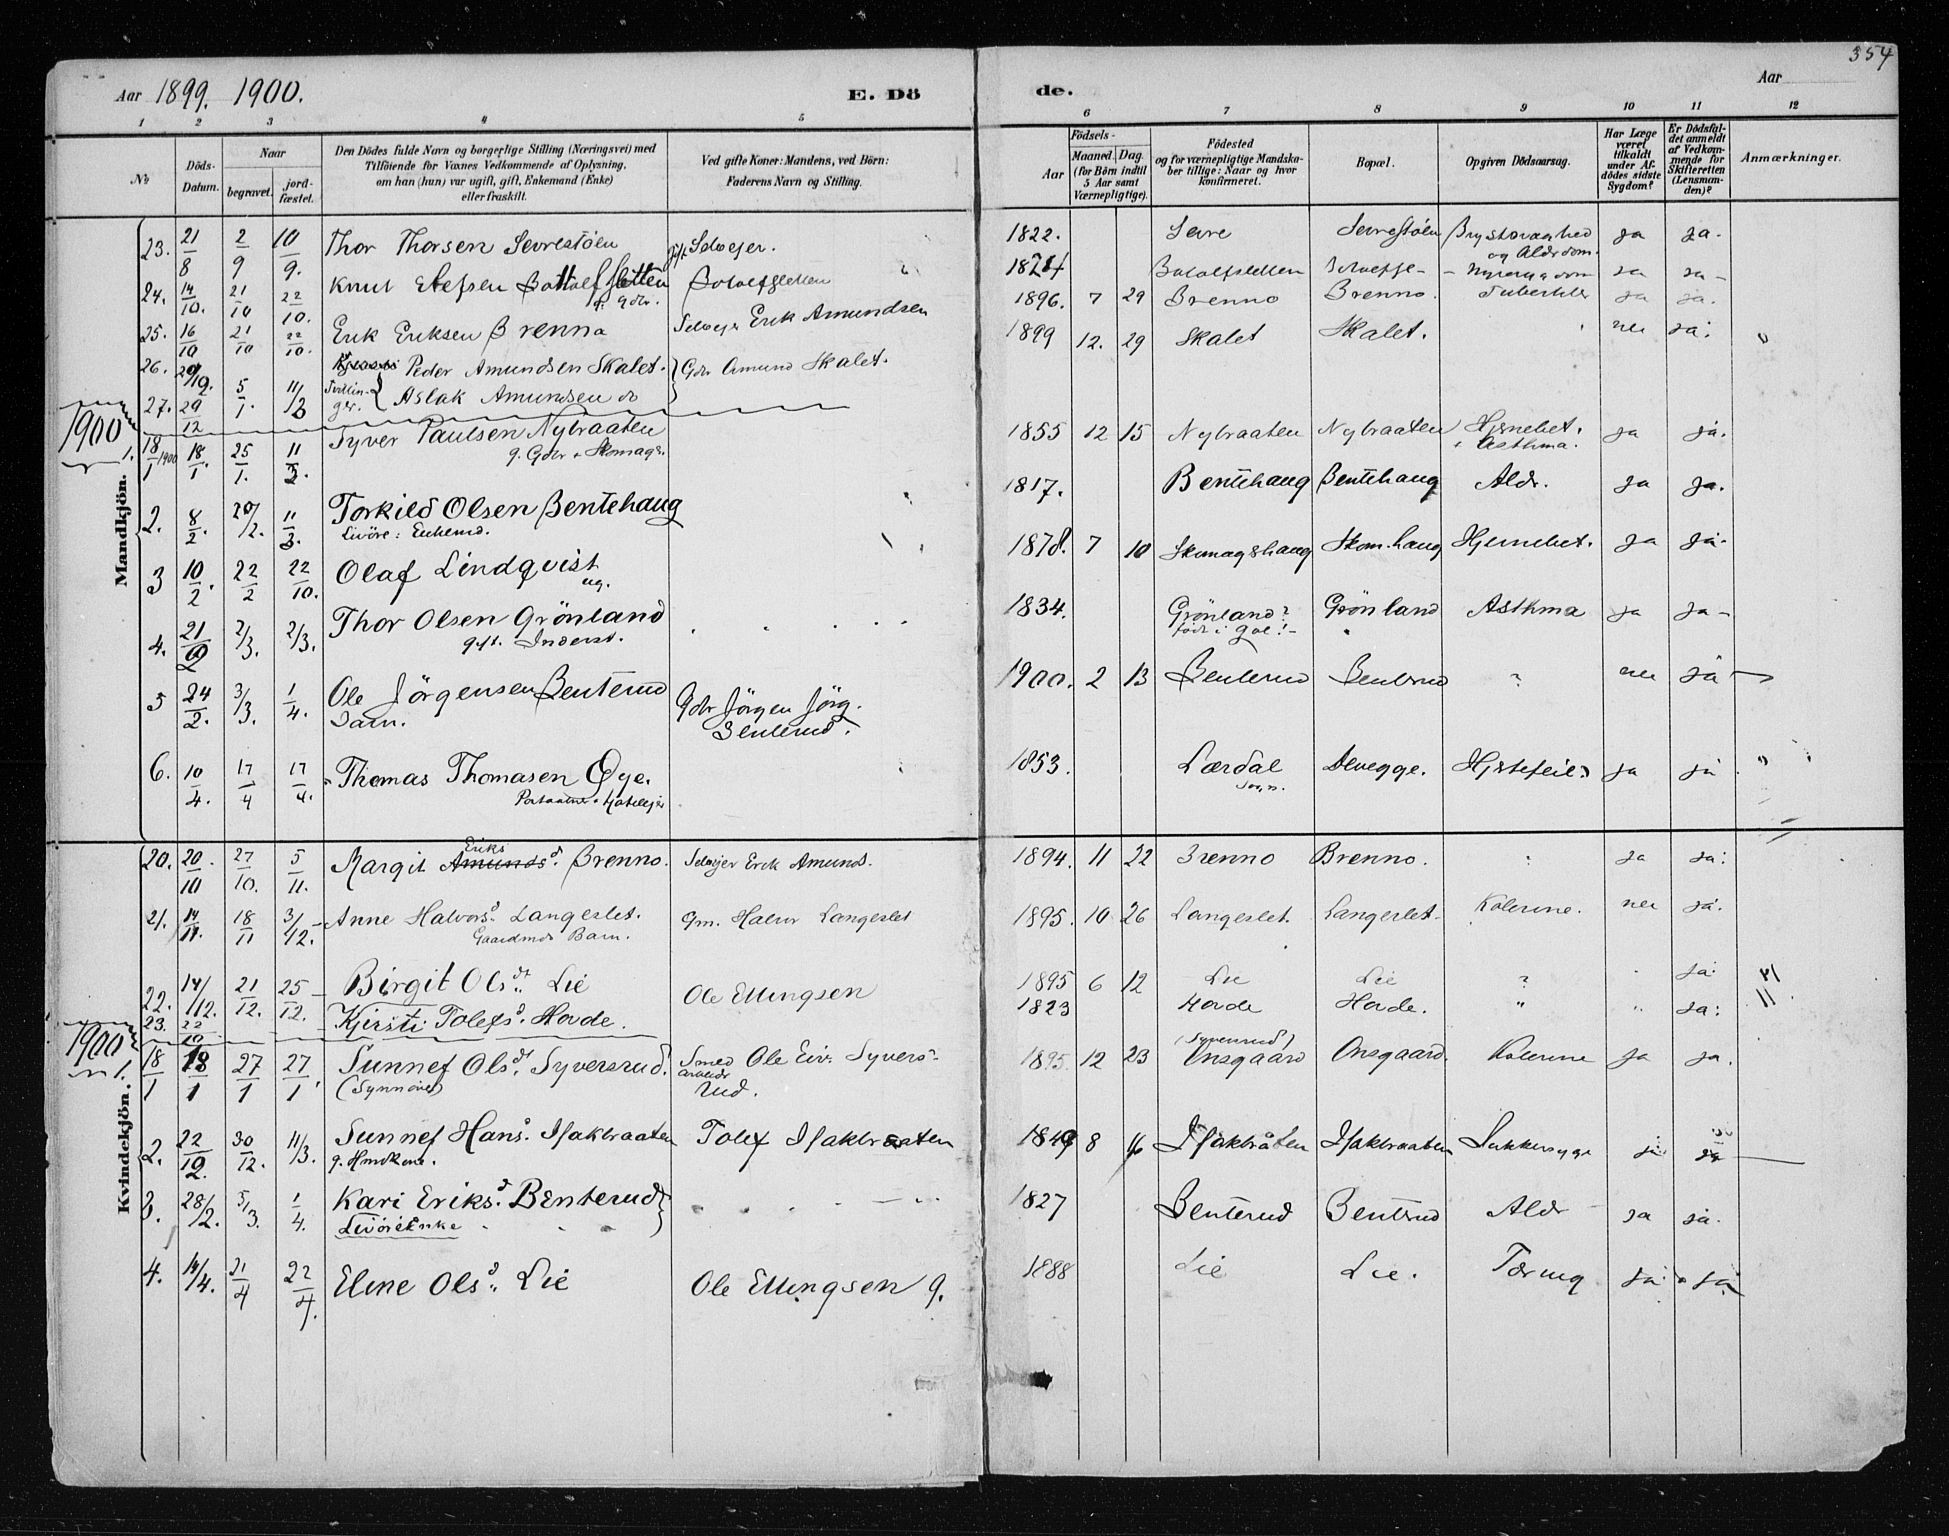 354
Aar 1899. 1900.
E. Dö
de.
Aar
1 2 3 4 5 6 7 8 9 10 11 12
No
Döds-Datum.
Naar
begravet.
jord-fæstet.
Den Dödes fulde Navn og borgerlige Stilling (Næringsvei) med
Tilföiende for Voxnes Vedkommende af Oplysning,
om han (hun) var ugift, gift, Enkemand (Enke)
eller fraskilt.
Ved gifte Koner: Mandens, ved Börn:
Faderens Navn og Stilling.
Födsels-
Aar
Maaned. Dag.
(for Börn indtil
5 Aar samt
Værnepligtige).
Födested
og for værnepligtige Mandska-
ber tillige: Naar og hvor
konfirmeret.
Bopæl.
Opgiven Dödsaarsag.
Har Læge
været
tilkaldt
under Af-
dödes sidste
Sygdom?
Er Dödsfal-
det anmeldt
af Vedkom-
mende for
Skifteretten
(Lensman-
den)?
Anmærkninger.
Mandkjön.
23. 21/8 2/9 10/9. Thor Thorsen Sevrestöen Selvejer. 1822. Sevre Sevrestöen Brystsvaghed og Aldrdom. ja ja.
24. 14/10. 21/10 22/10. Knut Botolfsletten Botolfsletten 1824 Botolfsletten ja ja
25. 16/10 21/10 22/10. Erik Eriksen Brenno Selvejer Erik Amundsen 1896. 7 29 Brenno Brenno. ja ja.
26. 29/12. 5/1. 11/3 Peder Amundsen Skalet. Gdbr Amund Skalet. 1899 12. 29 Skalet Skalet. nei ja.
27. 29/12 Tvillin-
ger. Aslak Amundsen do
1900
1. 18/1 1900 18/1. 25/1. 11/3. Syver Paulsen Nybraaten 1855 12 15 Nybraaten Nybraaten Hjernebet.
g. Gdbr + Skomagr. + Asthma. ja ja.
2. 8/2. 20/2. 11/3. Torkild Olsen Bentehaug 1817. Bentehaug Bentehaug Aldr. ja ja.
Livöre: Enkemd.
3 10/2. 22/2 22/10. Olaf Lindqvist 1878. 7 10 Skomagshaug Skom.haug Hjernebet. ja ja.
ug.
4. 21/2 2/3. 2/3. Thor Olsen Grönland 1834. Grönland? Grönland Asthma ja ja
gift. Inderst. födt i Gol!
5 24/2. 3/3. 1/4. Ole Jörgensen Benterud Gdbr Jörgen Jörg. 1900. 2 13 Benterud Benterud ? nei ja
Barn. Benterud.
6. 10/4. 17/4 17/4. Thomas Thomasen Öye. 1853. Lærdal Hjertefeil ja ja "
Sogn.
Kvindekjön.
20. 20/10 27/10. 5/11. Margit Amundsd. Eriks Brenno. Selvejer Erik Amunds. 1894. 11 22 Brenno Brenno. ja ja.
21. 14/11. 18/11 3/12. Anne Halvorsd. Langeslet. Gm. Halvor Langeslet 1895. 10 26 Langeslet. Langerslet. Kolerine. nei ja.
Gaardmds Barn.
22. 14/12. 21/12. 25/12. Birgit Olsdt. Lie Ole Ellingsen 1895 6 12 Lie Lie ? ja.
23. 22/10 Kjersti Tolefsd. Hovde. 1823 Hovde Hovde. " " ja.
1900
1. 18/1 18/1 27/1 27/1. Sunnef Olsdt. Syversrud. Smed Ole Eiv. Syvers- 1895. 12 23 Onsgaard Onsgaard. Kolerine ja ja.
(Synnöve) arbeidr rud. (Syversrud)
2. 22/12. 30/12. 11/3. Sunnef Hansd. Isakbraaten Tolef Isakbraaten 1849 8 Isakbråten Isakbraaten Sukkersyge ja ja
3. 28/2. 5/3. 1/4. Kari Eriksd. Benterud 1827 Benterud Benterud Aldr ja ja.
Livöreenke
4. 14/4. 21/4 22/4. Eline Olsd. Lie Ole Ellingsen g. 1888 Lie Lie. Tæring ja ja